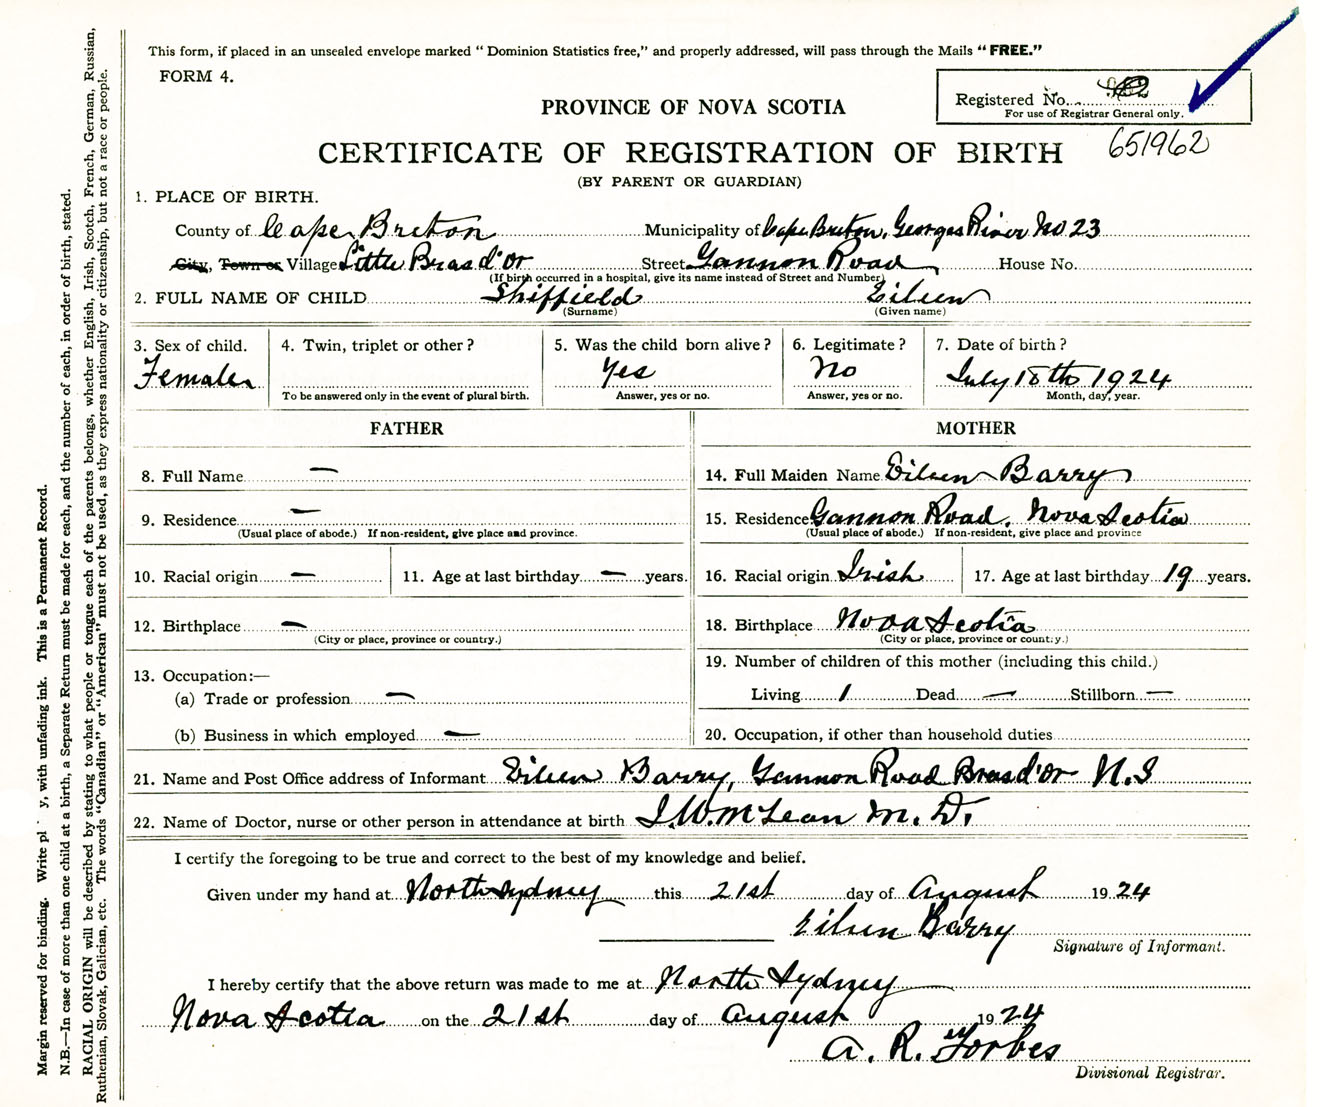 This form, if placed in an unsealed envelope marked "Dominion Statistics free," and properly addressed, will pass through the Mails "FREE."
FORM 4.
Registered No.
For use of Registrar General only.
PROVINCE OF NOVA SCOTIA
651962
CERTIFICATE OF REGISTRATION OF BIRTH
(BY PARENT OR GUARDIAN)
1. PLACE OF BIRTH.
County of Cape Breton Municipality of Cape Breton, Georges River No 23
City, Town or Village Little Bras d'Or Street Gannon Road House No.
(If birth occurred in a hospital, give its name instead of Street and Number)
2. FULL NAME OF CHILD Shiffield Eileen
(Surname) (Given name)
3. Sex of child. 4. Twin, triplet or other? 5. Was the child born alive? 6. Legitimate? 7. Date of birth?
Female Yes No July 18th 1924
To be answered only in the event of plural birth. Answer, yes or no. Answer, yes or no. Month, day, year.
FATHER MOTHER
8. Full Name — 14. Full Maiden Name Eileen Barry
9. Residence — 15. Residence Gannon Road, Nova Scotia
(Usual place of abode.) If non-resident, give place and province. (Usual place of abode.) If non-resident, give place and province
10. Racial origin — 11. Age at last birthday — years. 16. Racial origin Irish 17. Age at last birthday 19 years.
12. Birthplace — 18. Birthplace Nova Scotia
(City or place, province or country.) (City or place, province or country.)
13. Occupation:— 19. Number of children of this mother (including this child.)
(a) Trade or profession — Living 1 Dead — Stillborn —
(b) Business in which employed — 20. Occupation, if other than household duties
21. Name and Post Office address of Informant Eileen Barry, Gannon Road Bras d'Or N.S
22. Name of Doctor, nurse or other person in attendance at birth J.W. McLean M.D.
I certify the foregoing to be true and correct to the best of my knowledge and belief.
Given under my hand at North Sydney this 21st day of August 1924
Eileen Barry
Signature of Informant.
I hereby certify that the above return was made to me at North Sydney
Nova Scotia on the 21st day of August 1924
A. R. Forbes
Divisional Registrar.
Margin reserved for binding. Write pl y, with unfading ink. This is a Permanent Record.
N.B.—In case of more than one child at a birth, a Separate Return must be made for each, and the number of each, in order of birth, stated.
RACIAL ORIGIN will be described by stating to what people or tongue each of the parents belongs, whether English, Irish, Scotch, French, German, Russian,
Ruthenian, Slovak, Galician, etc. The words "Canadian" or "American" must not be used, as they express nationality or citizenship, but not a race or people.